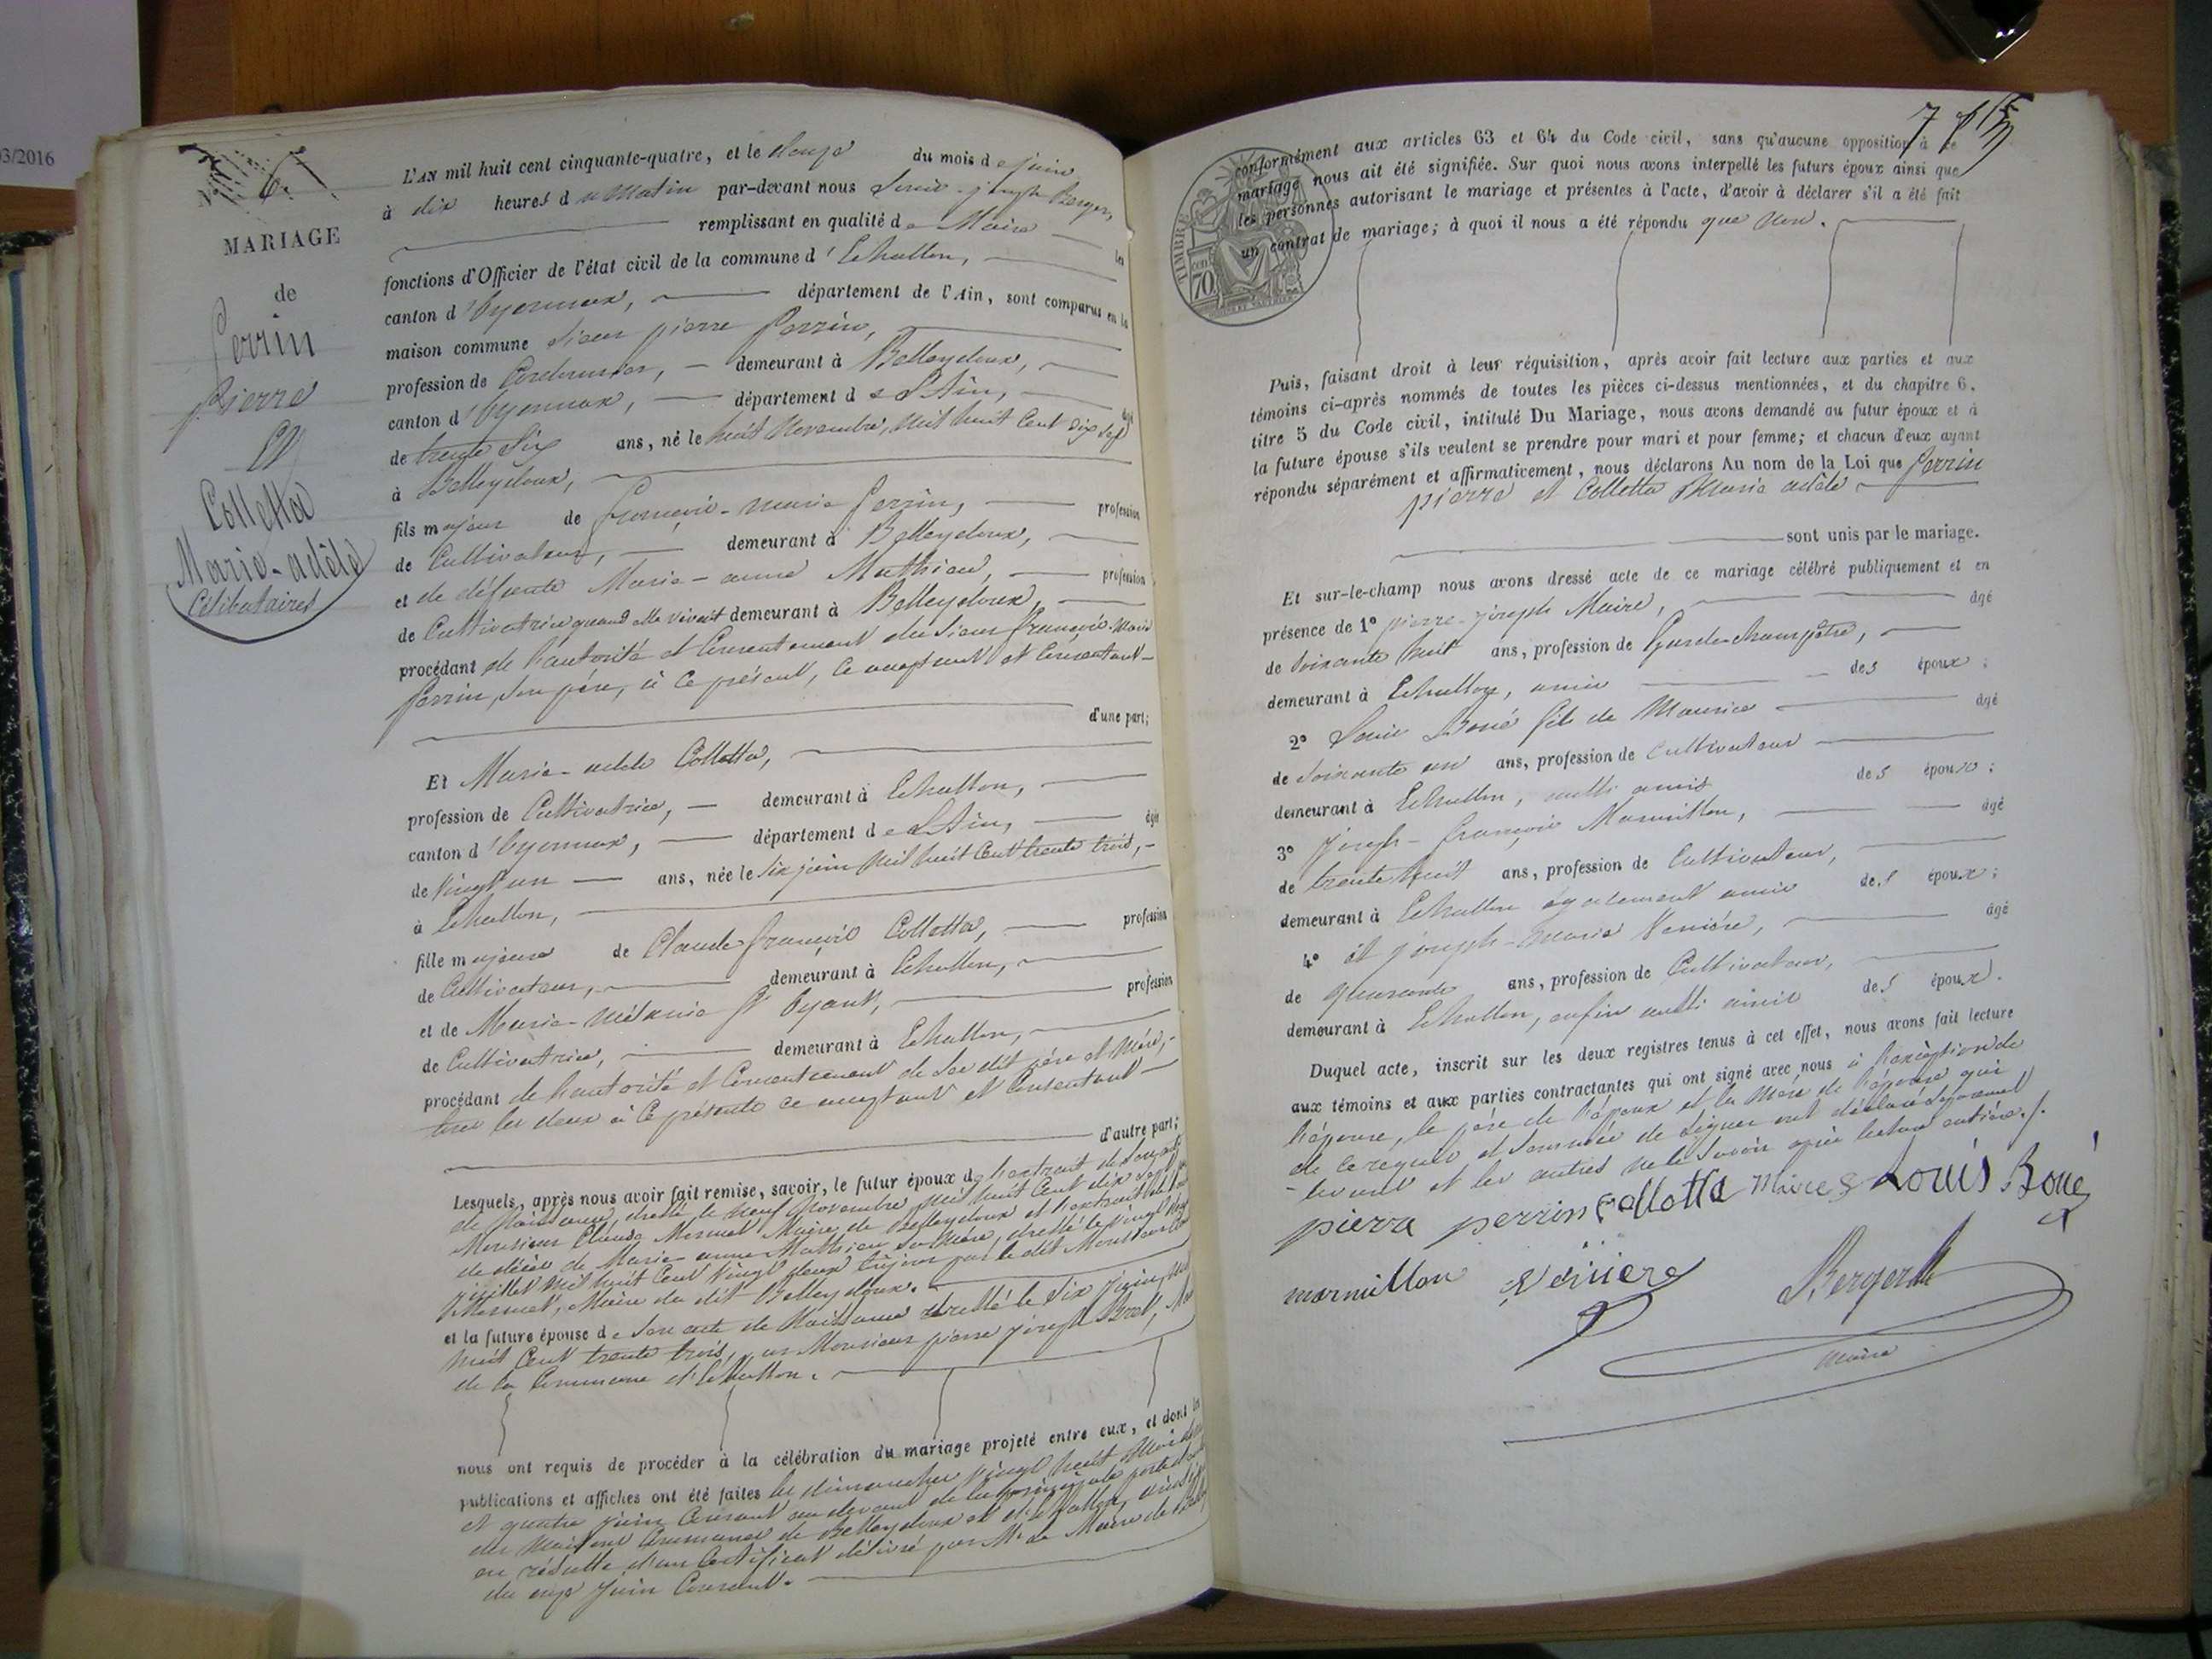 03/2016
6.
MARIAGE
de
Perrin
Pierre
Et
Colletta
Marie-adèle
Célibataires
L'AN mil huit cent cinquante-quatre, et le douze du mois de juin
à dix heures du matin par-devant nous Louis-joseph Berger,
remplissant en qualité de Maire les
fonctions d'Officier de l'état civil de la commune d'Echallon,
canton d'Oyonnax, département de l'Ain, sont comparus en la
maison commune Sieur pierre Perrin,
profession de Cordonnier, demeurant à Belleydoux,
canton d'Oyonnax, département de l'Ain, âgé
de trente Six ans, né le huit Novembre, Mil huit Cent dix Sept
à Belleydoux,
fils majeur de françois-marie Perrin, profession
de Cultivateur, demeurant à Belleydoux,
et de défunte Marie-anne Mathieu, profession
de Cultivatrice quand elle vivait demeurant à Belleydoux,
procédant de l'autorité et Consentement du Sieur françois-Marie
Perrin, Son père, à Ce présent, Ce acceptant et Consentant
d'une part;
Et Marie-adèle Colletta,
profession de Cultivatrice, demeurant à Echallon,
canton d'Oyonnax, département de l'Ain, âgée
de Vingt un ans, née le Six juin Mil huit Cent trente trois,
à Echallon,
fille majeure de Claude françois Colletta, profession
de Cultivateur, demeurant à Echallon,
et de Marie-mélanie St Oyant, profession
de Cultivatrice, demeurant à Echallon,
procédant de l'autorité et Consentement de Ses dit père et Mère,
tous les deux à Ce présents ce acceptant et Consentant
d'autre part;
Lesquels, après nous avoir fait remise, savoir, le futur époux de l'extrait de Son acte
de Naissance, dressé le neuf Novembre Mil huit Cent dix Sept par
Monsieur Claude Mermet Maire de Belleydoux et l'extrait de l'acte
de décès de Marie-anne Mathieu Sa Mère, dressé le Vingt
juillet Mil huit Cent Vingt deux toujours par le dit Monsieur
Mermet, Maire du dit Belleydoux.
et la future épouse de Son acte de Naissance dressé le Six juin Mil
huit Cent trente trois, par Monsieur pierre joseph
de la Commune d'Echallon.
nous ont requis de procéder à la célébration du mariage projeté entre eux, et dont les
publications et affiches ont été faites les dimanches Vingt huit Mai
et quatre juin Courant au devant de la principale porte
des Maisons Communes de Belleydoux et d'Echallon, ainsi
en résulte d'un Certificat délivré par Mr le Maire de
du onze Juin Courant.
7
conformément aux articles 63 et 64 du Code civil, sans qu'aucune opposition à ce
mariage nous ait été signifiée. Sur quoi nous avons interpellé les futurs époux ainsi que
les personnes autorisant le mariage et présentes à l'acte, d'avoir à déclarer s'il a été fait
un contrat de mariage; à quoi il nous a été répondu que Non.
TIMBRE
70
Puis, faisant droit à leur réquisition, après avoir fait lecture aux parties et aux
témoins ci-après nommés de toutes les pièces ci-dessus mentionnées, et du chapitre 6.
titre 5 du Code civil, intitulé Du Mariage, nous avons demandé au futur époux et à
la future épouse s'ils veulent se prendre pour mari et pour femme; et chacun d'eux ayant
répondu séparément et affirmativement, nous déclarons Au nom de la Loi que Perrin
pierre et Colletta Marie adèle
sont unis par le mariage.
Et sur-le-champ nous avons dressé acte de ce mariage célébré publiquement et en
présence de 1° pierre-joseph Maire, âgé
de Soixante huit ans, profession de Garde-champêtre,
demeurant à Echallon, amis des époux;
2° Louis Boné fils de Maurice âgé
de Soixante un ans, profession de Cultivateur
demeurant à Echallon, aussi amis des époux;
3° Joseph-françois Marmillon, âgé
de trente huit ans, profession de Cultivateur,
demeurant à Echallon également amis des époux;
4° et joseph-marie Venière, âgé
de quarante ans, profession de Cultivateur,
demeurant à Echallon, enfin aussi amis des époux.
Duquel acte, inscrit sur les deux registres tenus à cet effet, nous avons fait lecture
aux témoins et aux parties contractantes qui ont signé avec nous à l'exception de
l'épouse, le père de l'époux et la Mère de l'épouse qui
de ce requis et Sommés de Signer ont déclaré
et les autres ne le Savoir après lecture entière./.
pierre perrin Collotta Maire Louis Boné
marmillon Veniere Berger
Maire